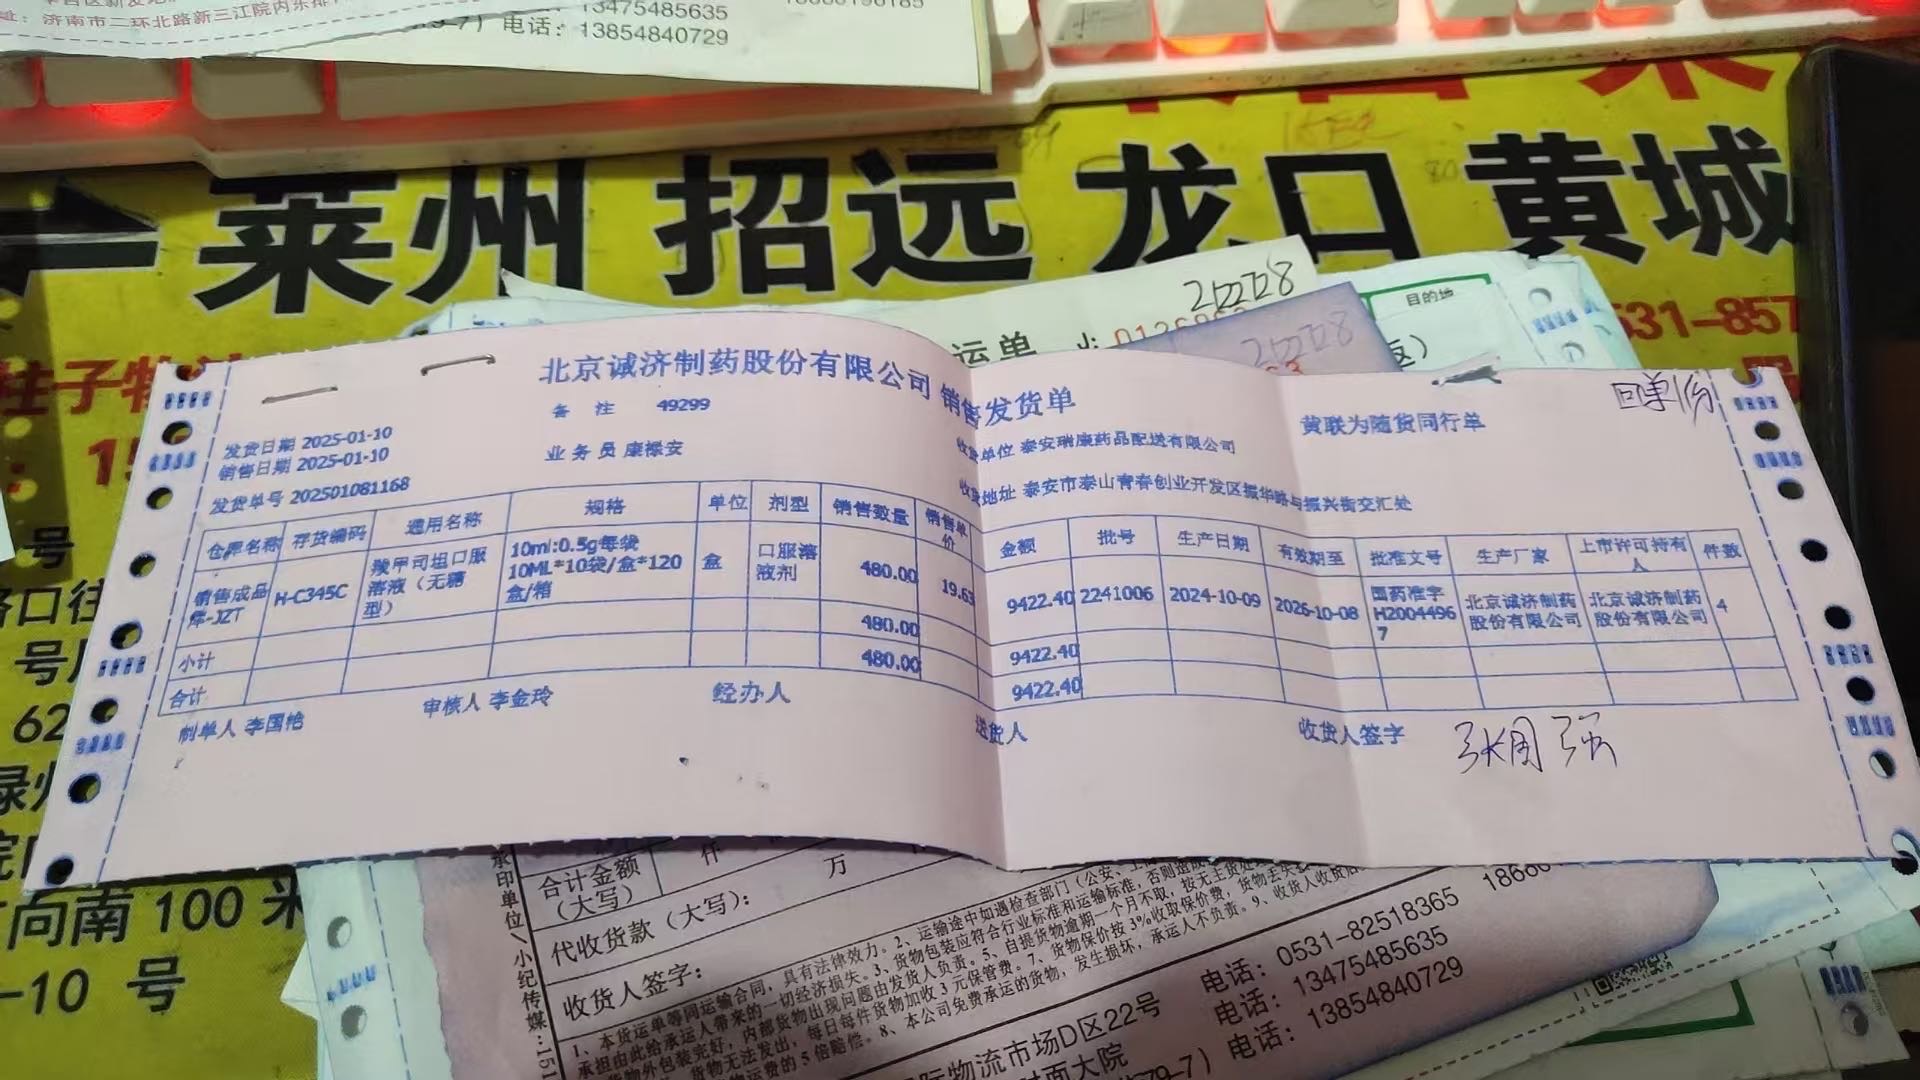 址：济南市二环北路新三江院内东排
13475485635
电话：13854840729
莱州 招远 龙口 黄城
212228
运单
目的地
212228
531-857
北京诚济制药股份有限公司 销售发货单
回单1份
备 注 49299
黄联为随货同行单
发货日期 2025-01-10
收货单位 泰安瑞康药品配送有限公司
销售日期 2025-01-10
业务员 康禄安
发货单号 202501081168
收货地址 泰安市泰山青春创业开发区振华路与振兴街交汇处
仓库名称 存货编码 通用名称 规格 单位 剂型 销售数量 销售单价 金额 批号 生产日期 有效期至 批准文号 生产厂家 上市许可持有人 件数
销售成品库-JZT H-C345C 羧甲司坦口服溶液（无糖型） 10ml:0.5g每袋 10ML*10袋/盒*120盒/箱 盒 口服溶液剂 480.00 19.63 9422.40 2241006 2024-10-09 2026-10-08 国药准字H20044967 北京诚济制药股份有限公司 北京诚济制药股份有限公司 4
小计 480.00 9422.40
合计 480.00 9422.40
制单人 李国怡 审核人 李金玲 经办人 送货人 收货人签字 张周强
号
62
向南 100 米
-10 号
承印单位/小纪传媒:151
合计金额（大写） 仟 万
代收货款（大写）：
收货人签字：
1、本货运单等同运输合同，具有法律效力。2、运输途中如遇检查部门（公安、工商
承担由此给承运人带来的一切经济损失。3、货物包装应符合行业标准和运输标准，否则造成
货物外包装完好，内部货物出现问题由发货人负责。5、自提货物逾期一个月不取，按无主货处
货物无法发出，每日每件货物加收3元保管费。7、货物保价按3‰收取保价费，货物丢失
物运费的5倍赔偿。8、本公司免费承运的货物，发生损坏，承运人不负责。9、收货人收货
国际物流市场D区22号 电话：0531-82518365
对面大院 电话：13475485635
79-7） 电话：13854840729